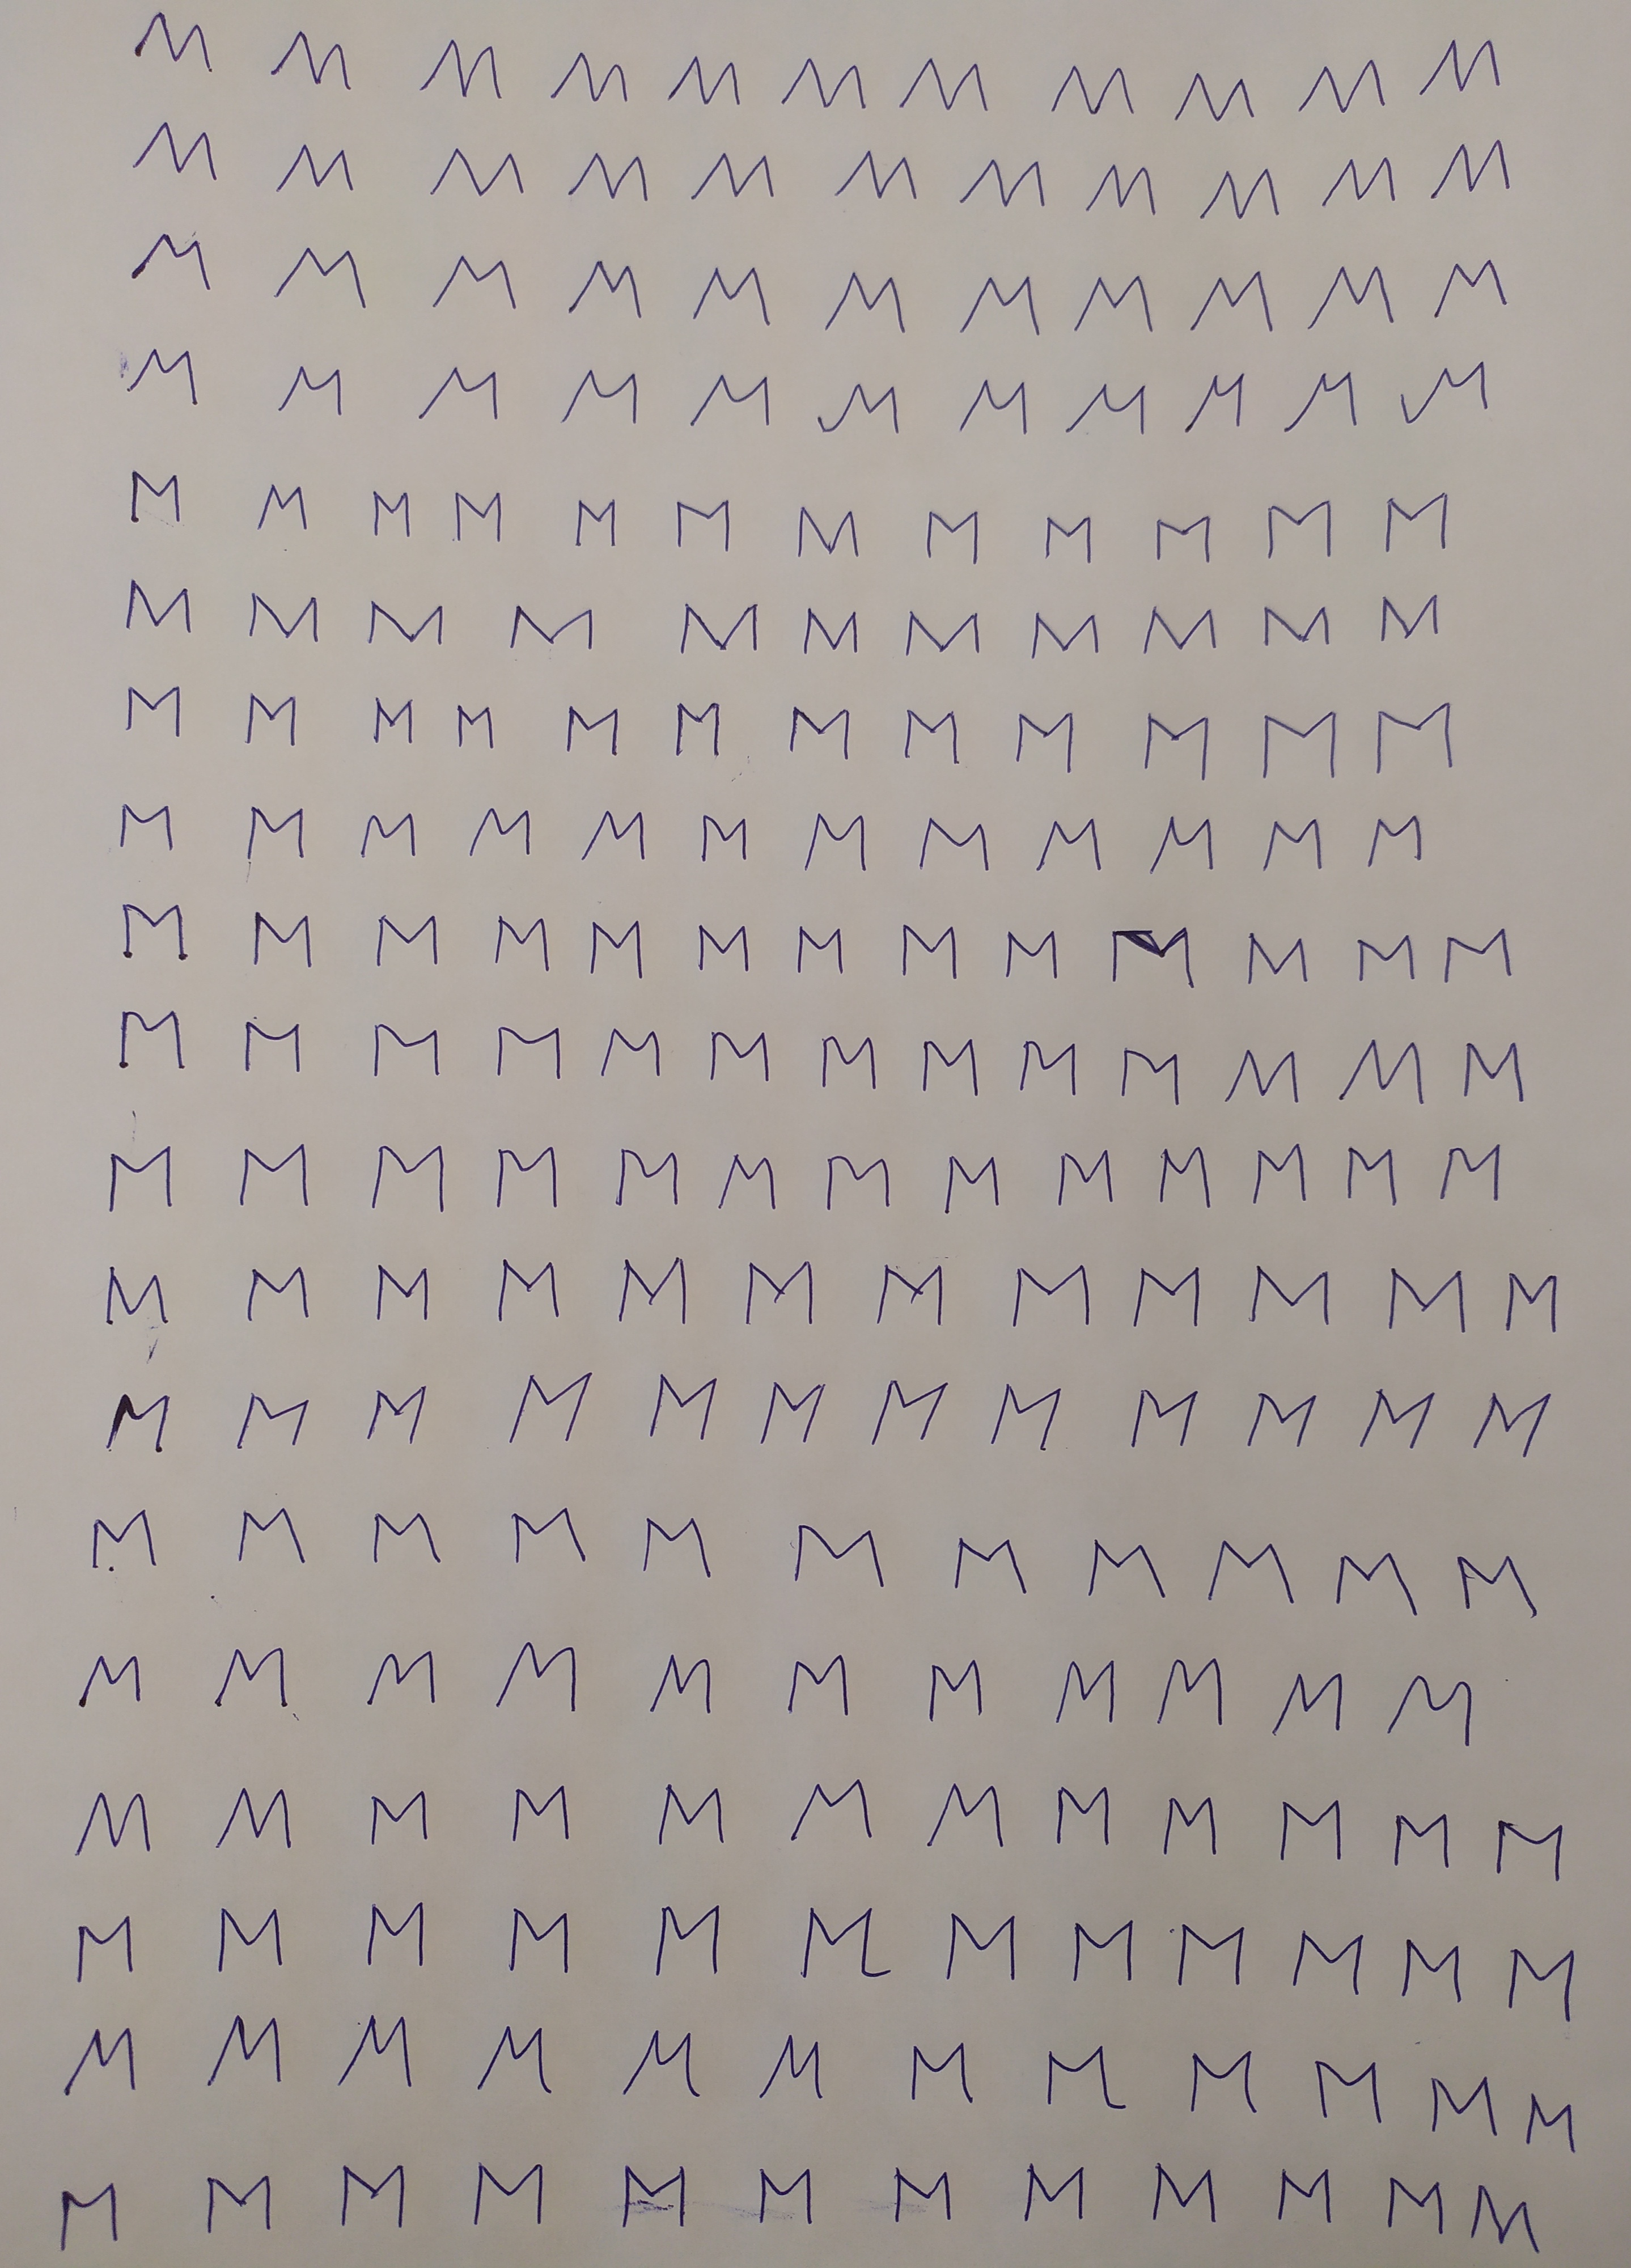 M M M M M M M M M M M
M M M M M M M M M M M
M M M M M M M M M M M
M M M M M M M M M M M
M M M M M M M M M M M M
M M M M M M M M M M M
M M M M M M M M M M M M
M M M M M M M M M M M M
M M M M M M M M M M M M M
M M M M M M M M M M M M M
M M M M M M M M M M M M M
M M M M M M M M M M M M
M M M M M M M M M M M M
M M M M M M M M M M M
M M M M M M M M M M M
M M M M M M M M M M M M
M M M M M M M M M M M M
M M M M M M M M M M M M
M M M M M M M M M M M M